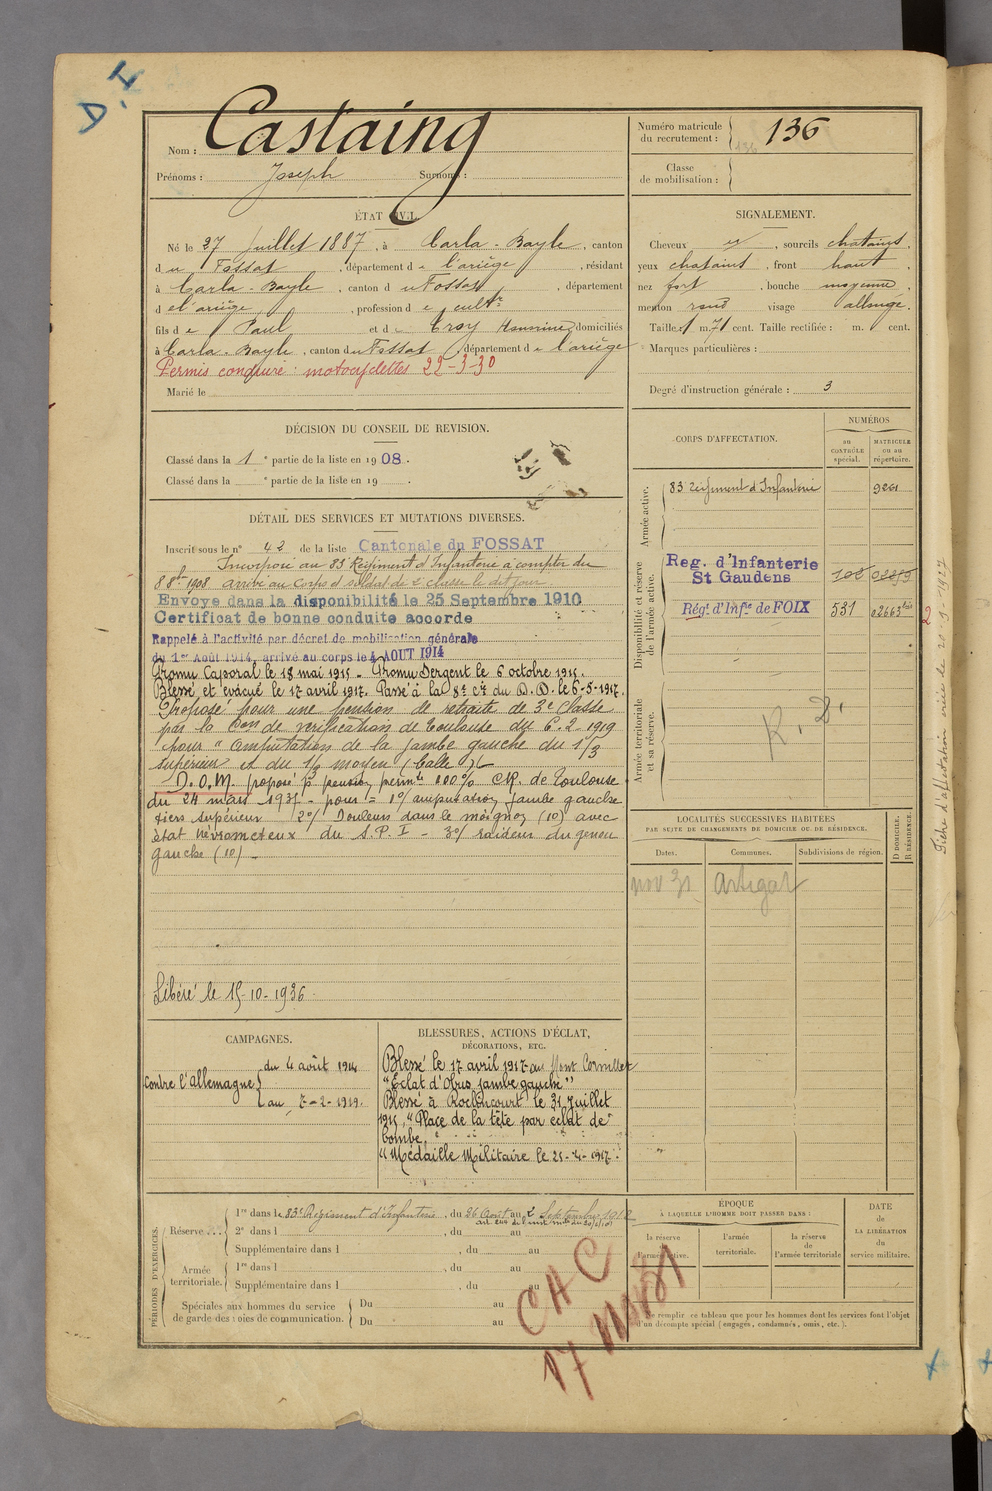 D.I
Nom : Castaing
Prénoms : Joseph Surnoms :
Numéro matricule du recrutement : 136
136
Classe de mobilisation :
ÉTAT CIVIL.
Né le 27 Juillet 1887, à Carla-Bayle, canton
du Fossat, département de l'ariège, résidant
à Carla-Bayle, canton du Fossat, département
de l'ariège, profession de cultr
fils de Paul et de Croy Honorine, domiciliés
à Carla-Bayle, canton du Fossat, département de l'ariège
Permis conduire : motocyclettes 22-3-30
Marié le
SIGNALEMENT.
Cheveux , sourcils chatains,
yeux chatains, front haut,
nez fort, bouche moyenne,
menton rond visage allongé.
Taille : 1 m. 71 cent. Taille rectifiée : m. cent.
Marques particulières :
Degré d'instruction générale : 3
DÉCISION DU CONSEIL DE REVISION.
Classé dans la 1e partie de la liste en 1908.
Classé dans la e partie de la liste en 19 .
DÉTAIL DES SERVICES ET MUTATIONS DIVERSES.
Inscrit sous le n° 42 de la liste Cantonale du FOSSAT
Incorporé au 83 Régiment d'Infanterie à compter du
8 8bre 1908 arrivé au corps et soldat de 2 classe le dit jour
Envoyé dans la disponibilité le 25 Septembre 1910
Certificat de bonne conduite accordé
Rappelé à l'activité par décret de mobilisation générale
du 1er Août 1914, arrivé au corps le 4 AOUT 1914
Promu Caporal le 18 mai 1915. Promu Sergent le 6 octobre 1915.
Blessé et évacué le 17 avril 1917. Passé à la 8e Cie du D.D. le 6-5-1917.
Proposé pour une pension de retraite de 3e classe
par la Con de vérification de Toulouse du 6-2-1919
pour "amputation de la jambe gauche du 1/3
supérieur et du 1/3 moyen (balle)"
D.O.M. proposé p pension permte 100% CR. de Toulouse
du 24 mars 1931 - pour = 1°/ amputation jambe gauche
tiers supérieur 2°/ Douleurs dans le moignon (10) avec
état névromateux du S.P.I - 3°/ raideur du genou
gauche (10) -
Libéré le 15-10-1936.
CORPS D'AFFECTATION.
NUMÉROS
au CONTRÔLE spécial.
MATRICULE ou au répertoire.
Armée active.
83 Régiment d'Infanterie
Disponibilité et réserve de l'armée active.
Reg. d'Infanterie
St Gaudens
Régt d'Infie de FOIX 531 02663bis
Armée territoriale et sa réserve.
R. D.
2
LOCALITÉS SUCCESSIVES HABITÉES
PAR SUITE DE CHANGEMENTS DE DOMICILE OU DE RÉSIDENCE.
Dates. Communes. Subdivisions de région. D DOMICILE. R RÉSIDENCE.
nov 31 Artigat
CAMPAGNES.
Contre l'allemagne
du 4 août 1914
au 7-2-1919.
BLESSURES, ACTIONS D'ÉCLAT,
DÉCORATIONS, ETC.
Blessé le 17 avril 1917 au Mont Cornillet
"Eclat d'Obus jambe gauche"
Blessé à Roclincourt le 31 Juillet
1915, "Place de la tête par éclat de
bombe."
"Médaille Militaire le 21-4-1917.
PÉRIODES D'EXERCICES.
Réserve
1re dans le 83e Régiment d'Infanterie, du 26 Août au 2 Septembre 1912
2e dans l , du au
Supplémentaire dans l , du au
Armée territoriale.
1re dans l , du au
Supplémentaire dans l , du au
Spéciales aux hommes du service de garde des voies de communication.
Du au
Du au
ÉPOQUE
À LAQUELLE L'HOMME DOIT PASSER DANS :
la réserve de l'armée active.
l'armée territoriale.
la réserve de l'armée territoriale
DATE de LA LIBÉRATION du service militaire.
Ne remplir ce tableau que pour les hommes dont les services font l'objet
d'un décompte spécial (engagés, condamnés, omis, etc.).
CAC
17 MARS 31